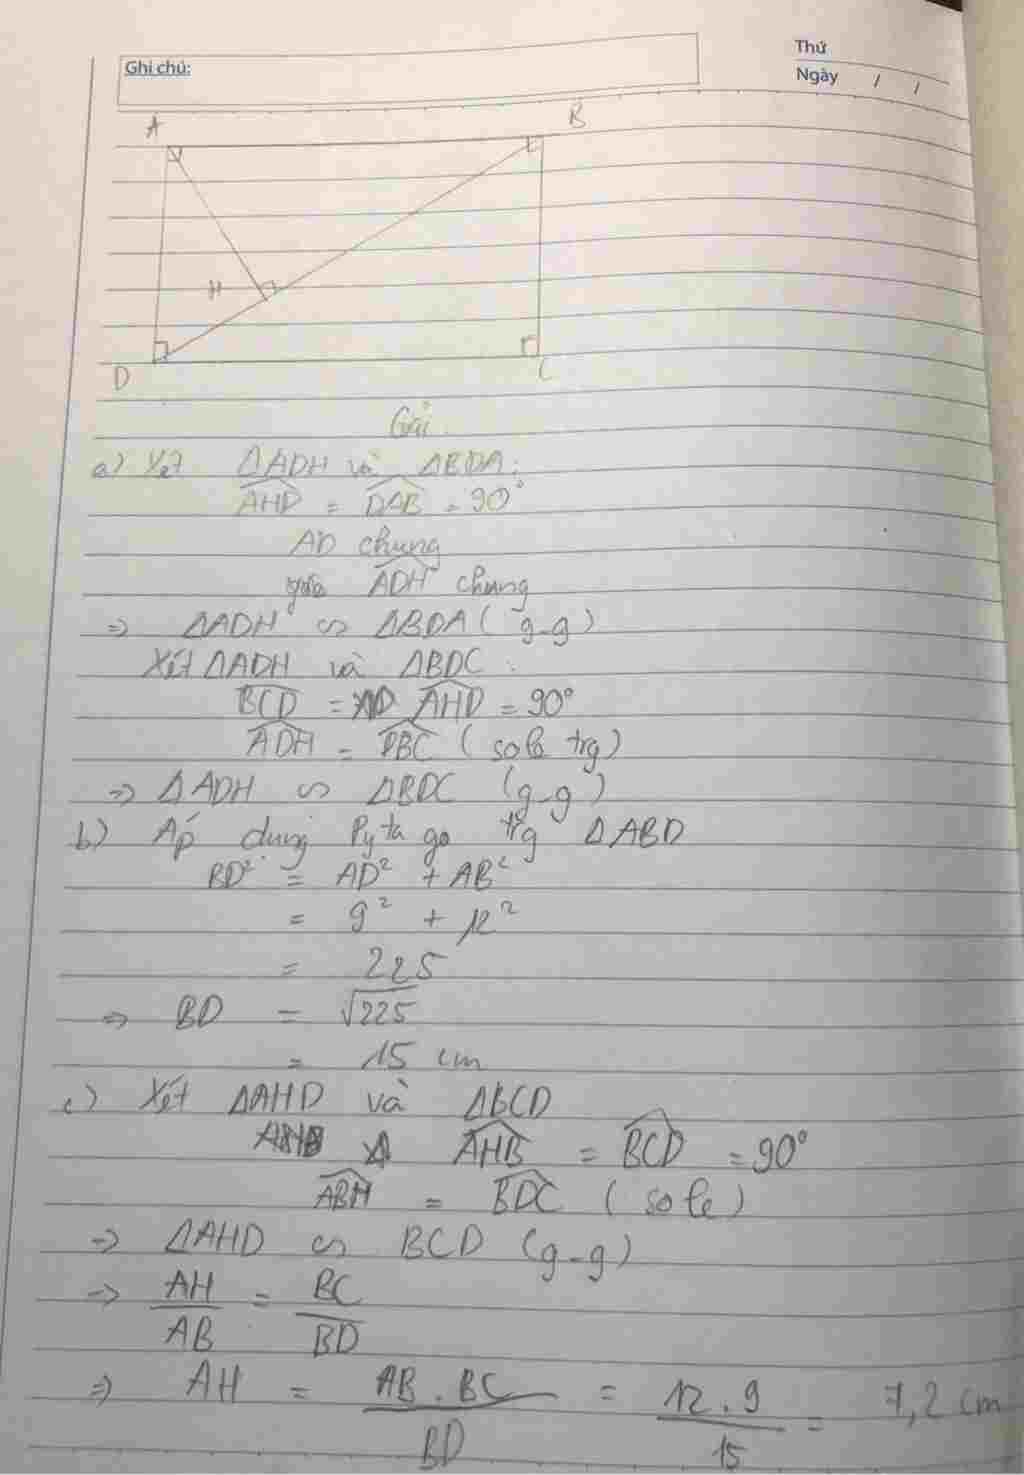 Ghi chú:
Thứ
Ngày / /
A B
H
D C
Giải
a) Xét ΔADH và ΔBDA:
AHD = DAB = 90°
AD chung
góc ADH chung
=> ΔADH ∽ ΔBDA ( g-g )
Xét ΔADH và ΔBDC :
BCD = AHD = 90°
ADH = DBC ( so le trg )
=> ΔADH ∽ ΔBDC (g-g )
b) Áp dụng Pytago trg ΔABD
BD² = AD² + AB²
= 9² + 12²
= 225
=> BD = √225
= 15 cm
c) Xét ΔAHD và ΔBCD
AHB = BCD = 90°
ABH = BDC ( so le )
=> ΔAHD ∽ BCD (g-g)
=> AH/AB = BC/BD
=> AH = AB . BC/BD = 12 . 9/15 = 7,2 cm